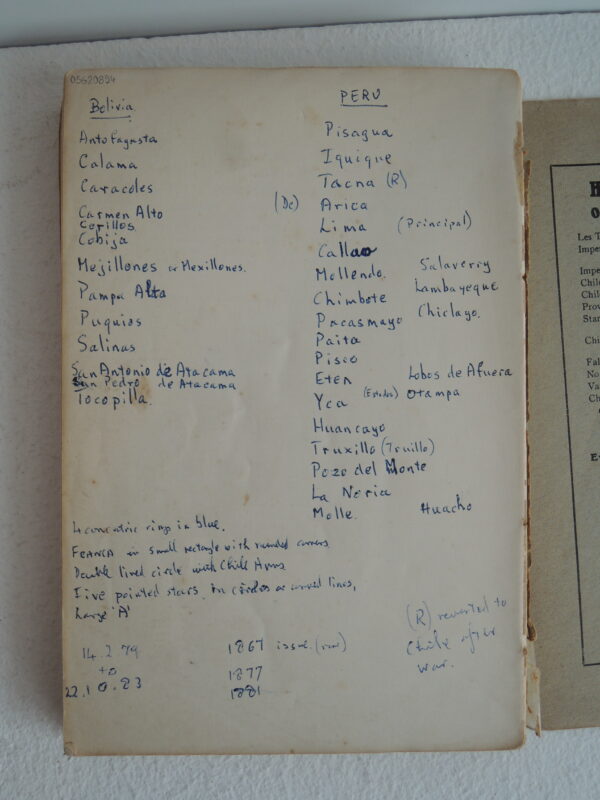 05620894
Bolivia
Antofagasta
Calama
Caracoles
Carmen Alto
Cerillos
Cobija
Mejillones or Mexillones.
Pampa Alta
Puquios
Salinas
San Antonio de Atacama
San Pedro de Atacama
Tocopilla.
PERU
Pisagua
Iquique
Tacna (R)
(Dc) Arica
Lima (Principal)
Callao
Mollendo. Salaverry
Chimbote Lambayeque
Pacasmayo Chiclayo.
Paita
Pisco
Eten Lobos de Afuera
Yca Otampa
Huancayo
Truxillo (Truillo)
Pozo del Monte
La Noria
Molle. Huacho
4 concentric rings in blue.
FRANCA in small rectangle with rounded corners
Double lined circle with Chile Arms
Five pointed stars in circles or curved lines,
Large 'A'
14.2.79
to
22.10.83
1867 issue. (rare)
1877
1881
(R) reverted to
Chile after
war.
H
O
Les T
Impe
Impe
Chile
Chil
Prov
Star
Chi
Fal
No
Va
Ch
E